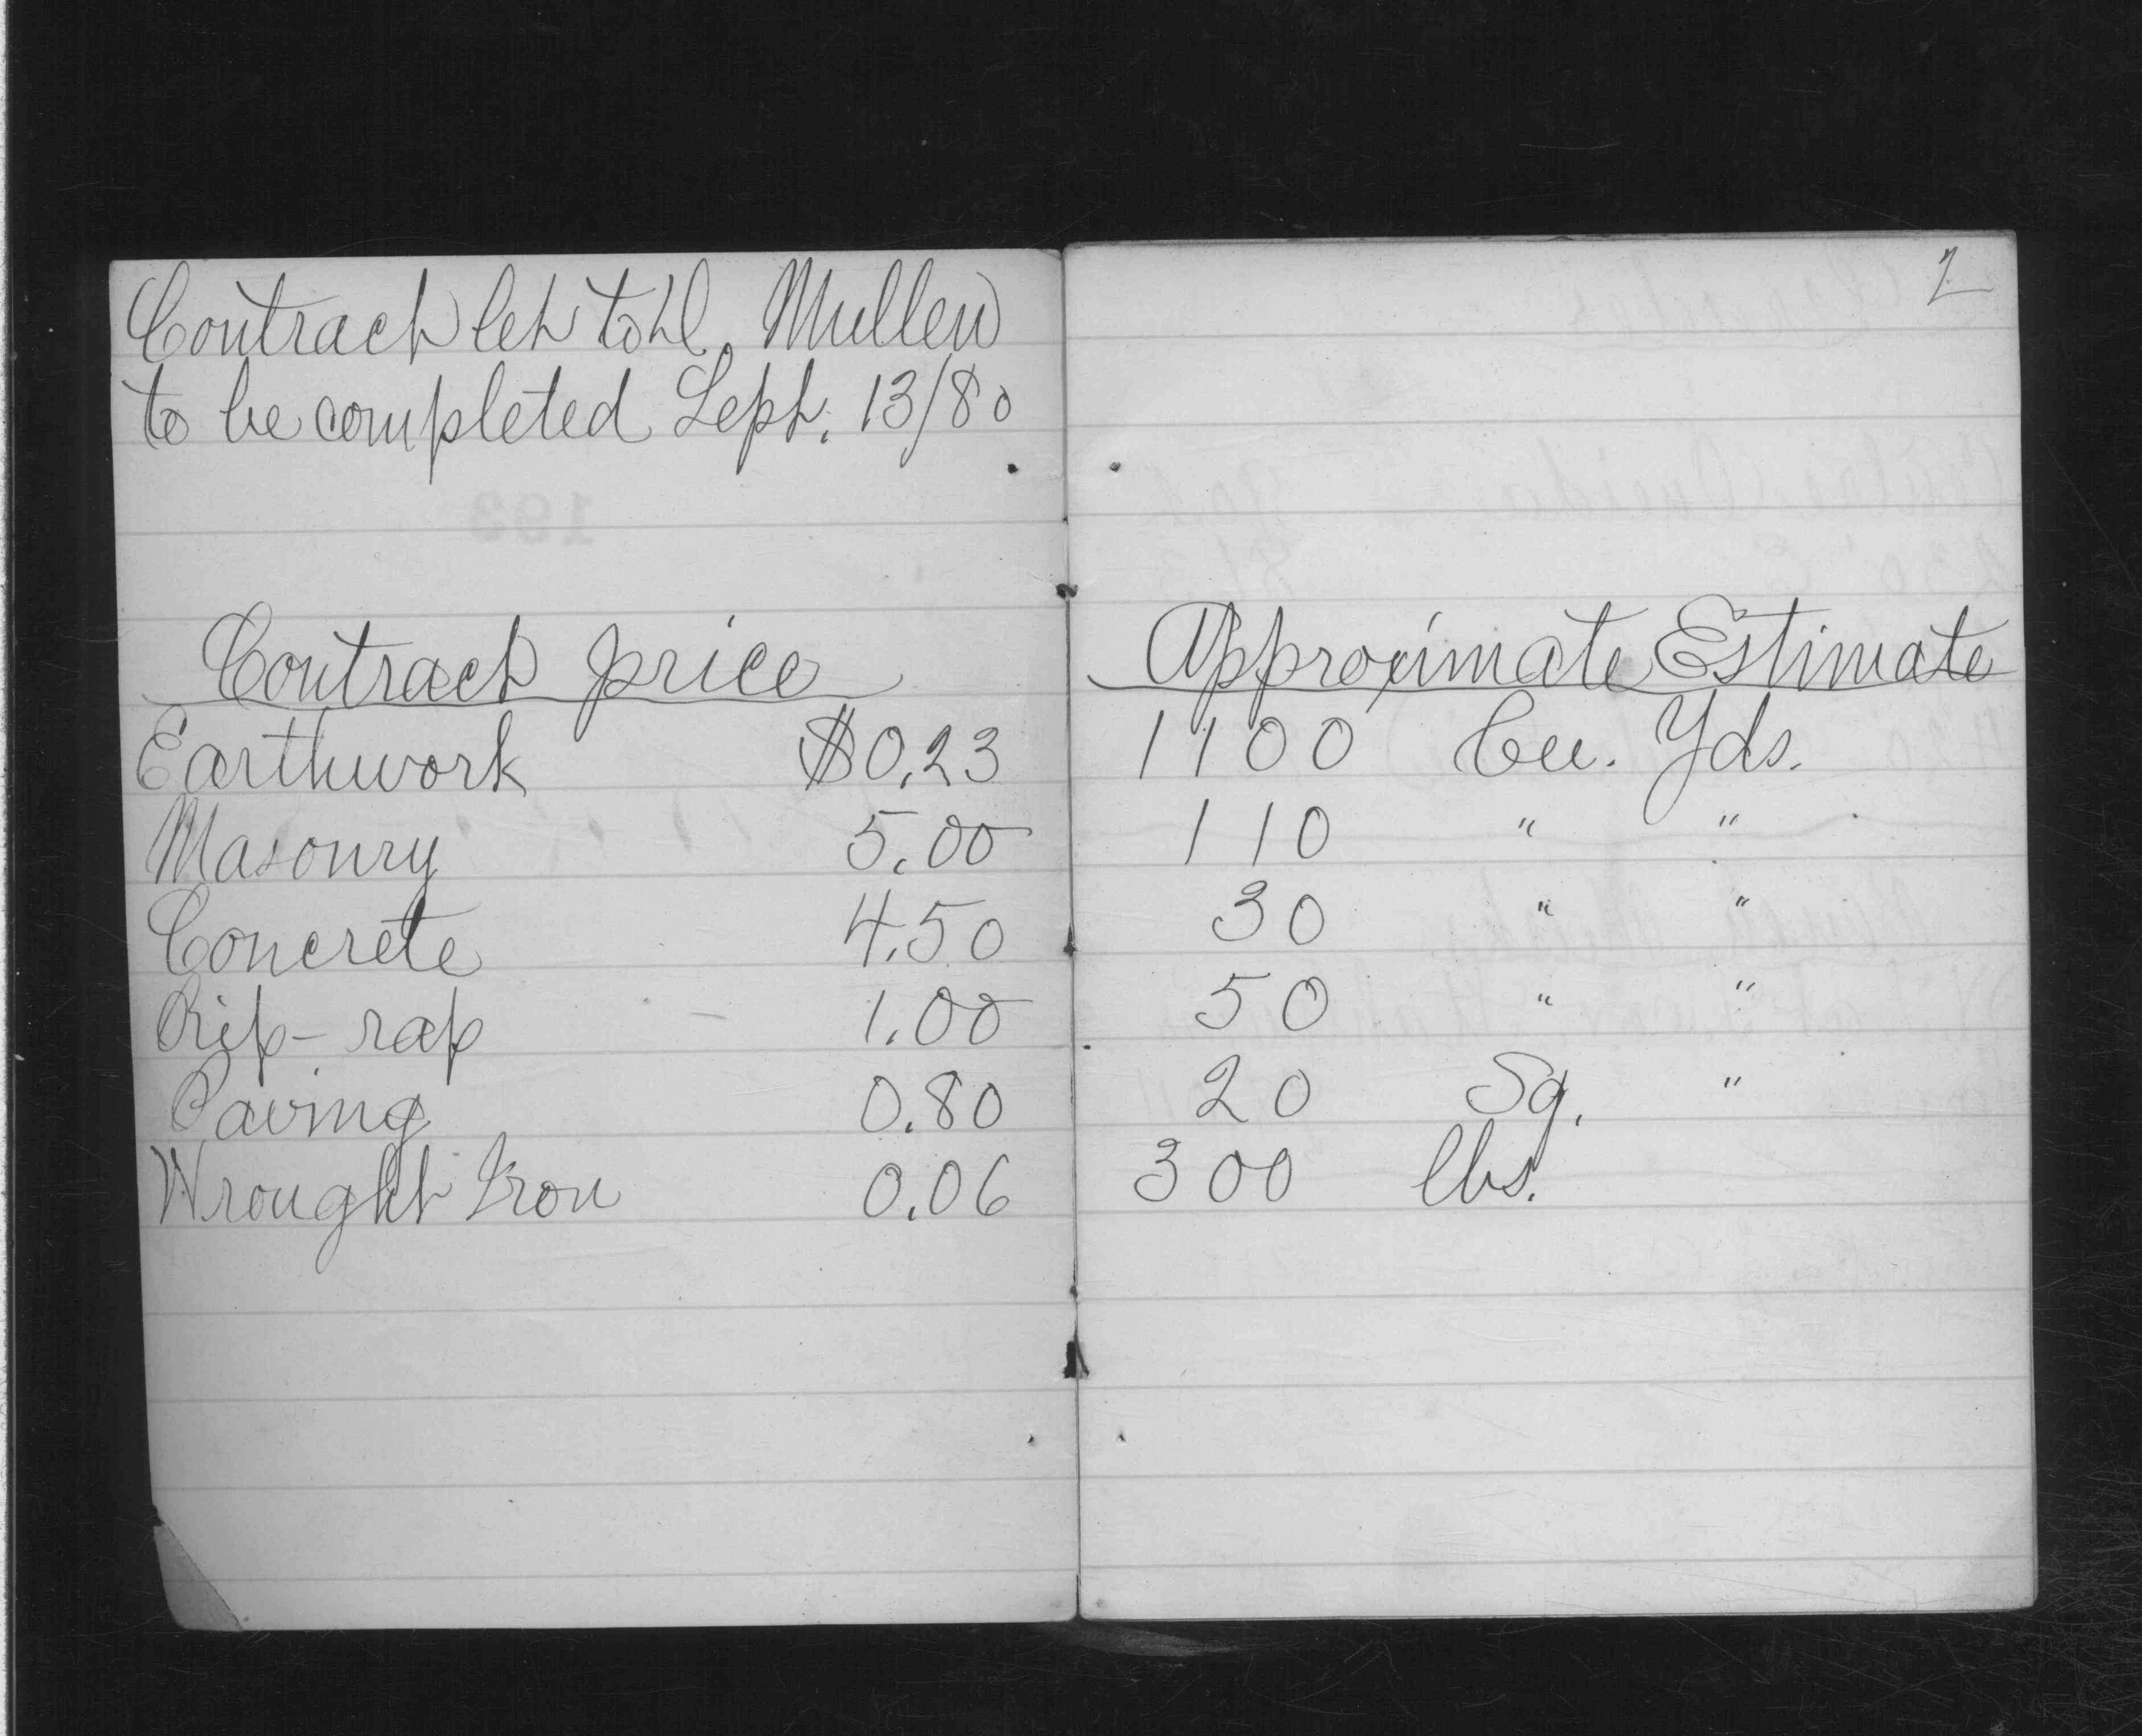 Contract let to H. Mullen
to be completed Sept. 13/80
193
Contract price
Earthwork $0.23
Masonry 5.00
Concrete 4.50
Rip-rap 1.00
Paving 0.80
Wrought Iron 0.06
2
Approximate Estimate
1100 Cu. Yds.
110 " "
30 " "
50 " "
20 Sq. "
300 lbs.